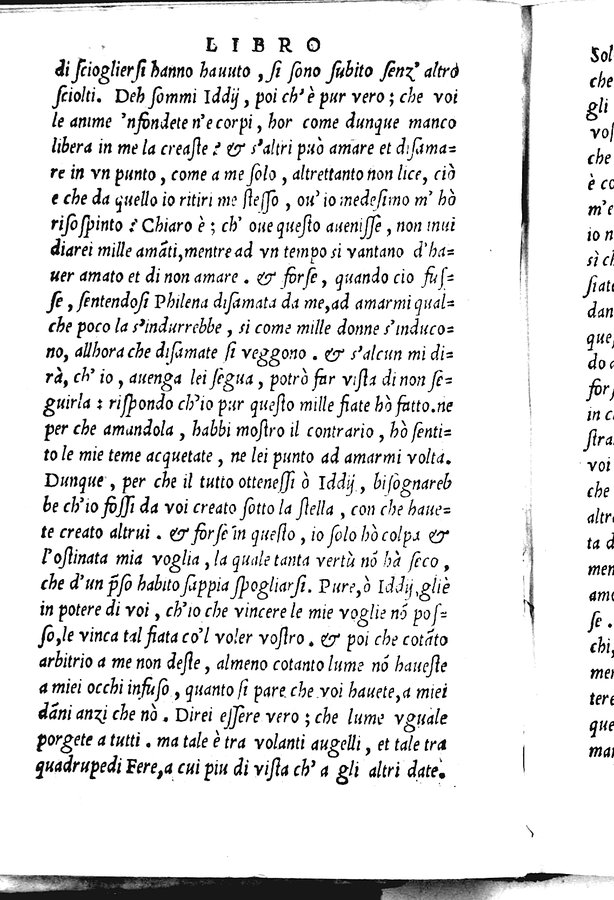 LIBRO
di ſcioglierſi hanno hauuto, ſi ſono ſubito ſenz' altro
ſciolti. Deh ſommi Iddij, poi ch'è pur vero; che voi
le anime 'nfondete n'e corpi, hor come dunque manco
libera in me la creaſte? & s'altri può amare et diſama-
re in vn punto, come a me ſolo, altrettanto non lice, ciò
e che da quello io ritiri me ſteſſo, ou' io medeſimo m' hò
riſoſpinto? Chiaro è; ch' oue queſto aueniſſe, non inui
diarei mille amãti, mentre ad vn tempo ſi vantano d'ha-
uer amato et di non amare. & forſe, quando cio fuſ=
ſe, ſentendoſi Philena diſamata da me, ad amarmi qual=
che poco la s'indurrebbe, si come mille donne s'induco=
no, allhora che diſamate ſi veggono. & s'alcun mi di=
rà, ch' io, auenga lei ſegua, potrò far viſta di non ſe=
guirla: riſpondo ch'io pur queſto mille fiate hò fatto. ne
per che amandola, habbi moſtro il contrario, hò ſenti=
to le mie teme acquetate, ne lei punto ad amarmi volta.
Dunque, per che il tutto otteneſſi ò Iddij, biſognareb
be ch'io foſſi da voi creato ſotto la ſtella, con che haue=
te creato altrui. & forſe in queſto, io ſolo hò colpa &
l'oſtinata mia voglia, la quale tanta vertù nõ hà ſeco,
che d'un pſo habito ſappia ſpogliarſi. Pure, ò Iddij, gliè
in potere di voi, ch'io che vincere le mie voglie nõ poſ-
ſo, le vinca tal fiata co'l voler voſtro. & poi che cotãto
arbitrio a me non deſte, almeno cotanto lume nõ haueſte
a miei occhi infuſo, quanto ſi pare che voi hauete, a miei
dãni anzi che nò. Direi eſſere vero; che lume vguale
porgete a tutti. ma tale è tra volanti augelli, et tale tra
quadrupedi Fere, a cui piu di viſta ch' a gli altri date.
Sol
che
gli
voſ
che
è co
m'e
io n
sì ch
ſiate
dan
que
do a
forſ
in c
ſtra
voi
che
altr
ta d
men
amo
ſe.
chi,
mer
tere
que
man